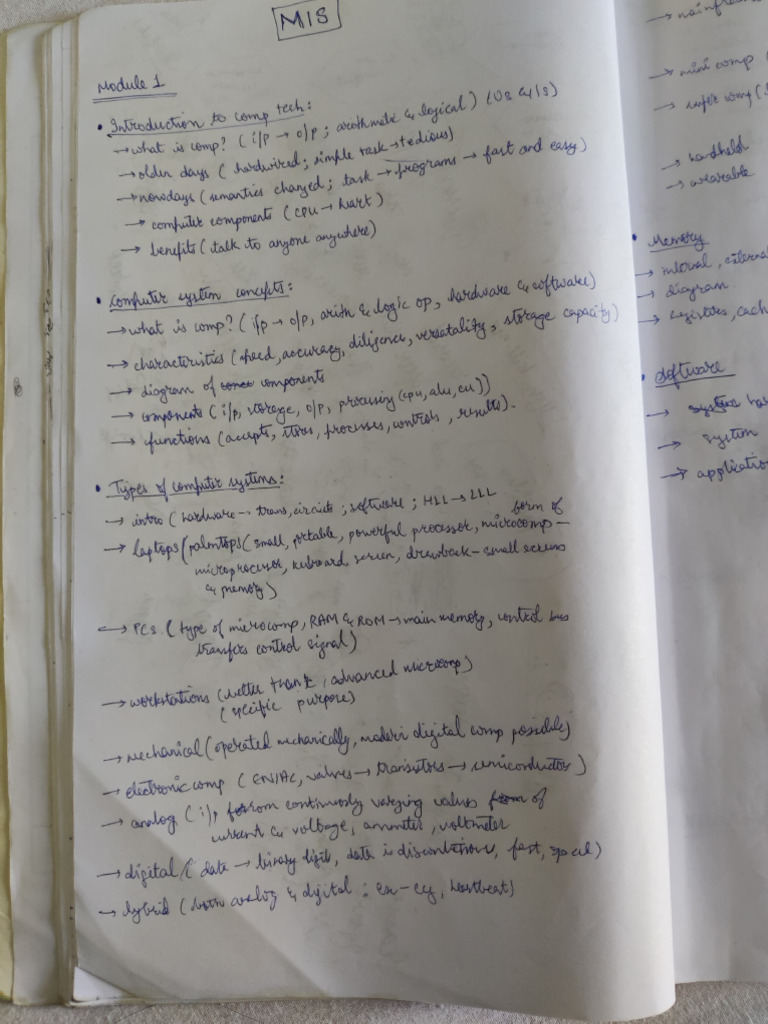 MIS
Module 1
• Introduction to comp tech:
→ what is comp? (i/p → o/p; arithmetic & logical) (OS & IS)
→ older days (hardwired; simple task → tedious)
→ nowdays (semantics changed; task → programs → fast and easy)
→ computer components (CPU → heart)
→ benefits (talk to anyone anywhere)
• Computer system concepts:
→ what is comp? (i/p → o/p, arith & logic op, hardware & software)
→ characteristics (speed, accuracy, diligence, versatality, storage capacity)
→ diagram of components
→ components (i/p, storage, o/p, processing (cpu, alu, cu))
→ functions (accepts, stores, processes, controls, results).
• Types of computer systems:
→ intro (hardware → trans, circuits; software; HLL → LLL
→ laptops/palmtops (small, portable, powerful processor, microcomp - form of
microprocessor, keyboard, screen, drawback - small screens
& memory)
→ PCs (type of microcomp, RAM & ROM → main memory, control bus
transfers control signal)
→ workstations (better than, advanced microcomp)
(specific purpose)
→ mechanical (operated mechanically, modern digital comp possible)
→ electronic comp (ENIAC, valves → transistors → semiconductors)
→ analog (i/p from continuosly varying values of
current & voltage, ammeter, voltmeter
→ digital (data → binary digits, data is discontinous, fast,
→ hybrid (both analog & digital : heartbeat)
→ mini comp
→ handheld
→ wearable
• Memory
→ internal, external
→ diagram.
→ registers, cach
• Software
→ system
→ application